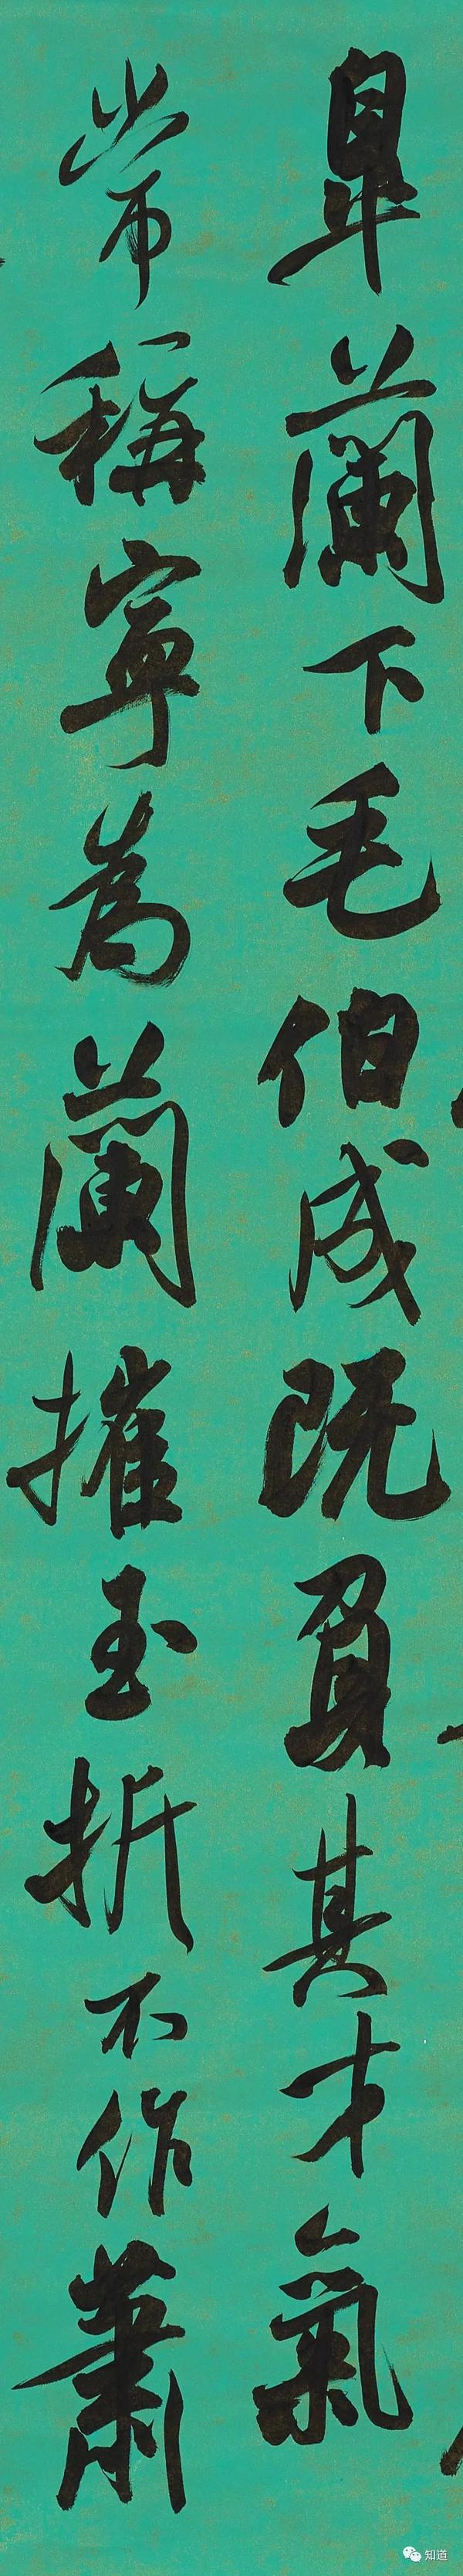 皐蘭下毛伯成既負其才氣
常稱寧為蘭摧玉折不作蕭
知道